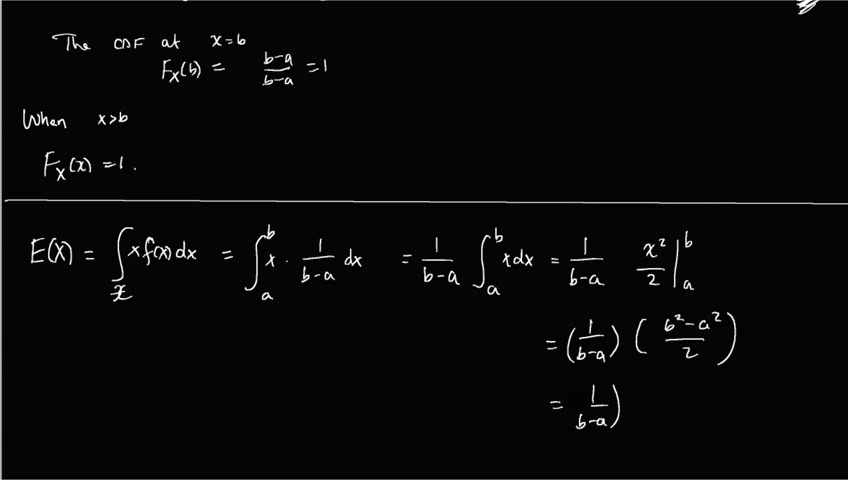 The CDF at x=b
F_X(b) = \frac{b-a}{b-a} = 1
When x>b
F_X(x) = 1.
E(X) = \int_{\mathcal{X}} x f(x) dx = \int_a^b x \cdot \frac{1}{b-a} dx = \frac{1}{b-a} \int_a^b x dx = \frac{1}{b-a} \frac{x^2}{2} |_a^b
= (\frac{1}{b-a}) (\frac{b^2-a^2}{2})
= \frac{1}{b-a})